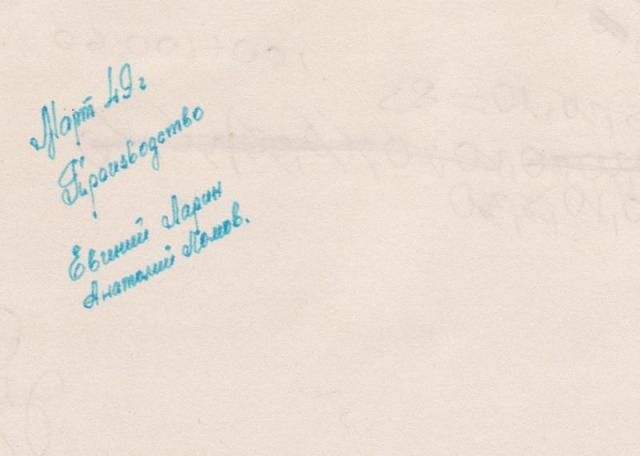 Март 49 г
Производство
Евгиний Ларин
Анатолий Помов.